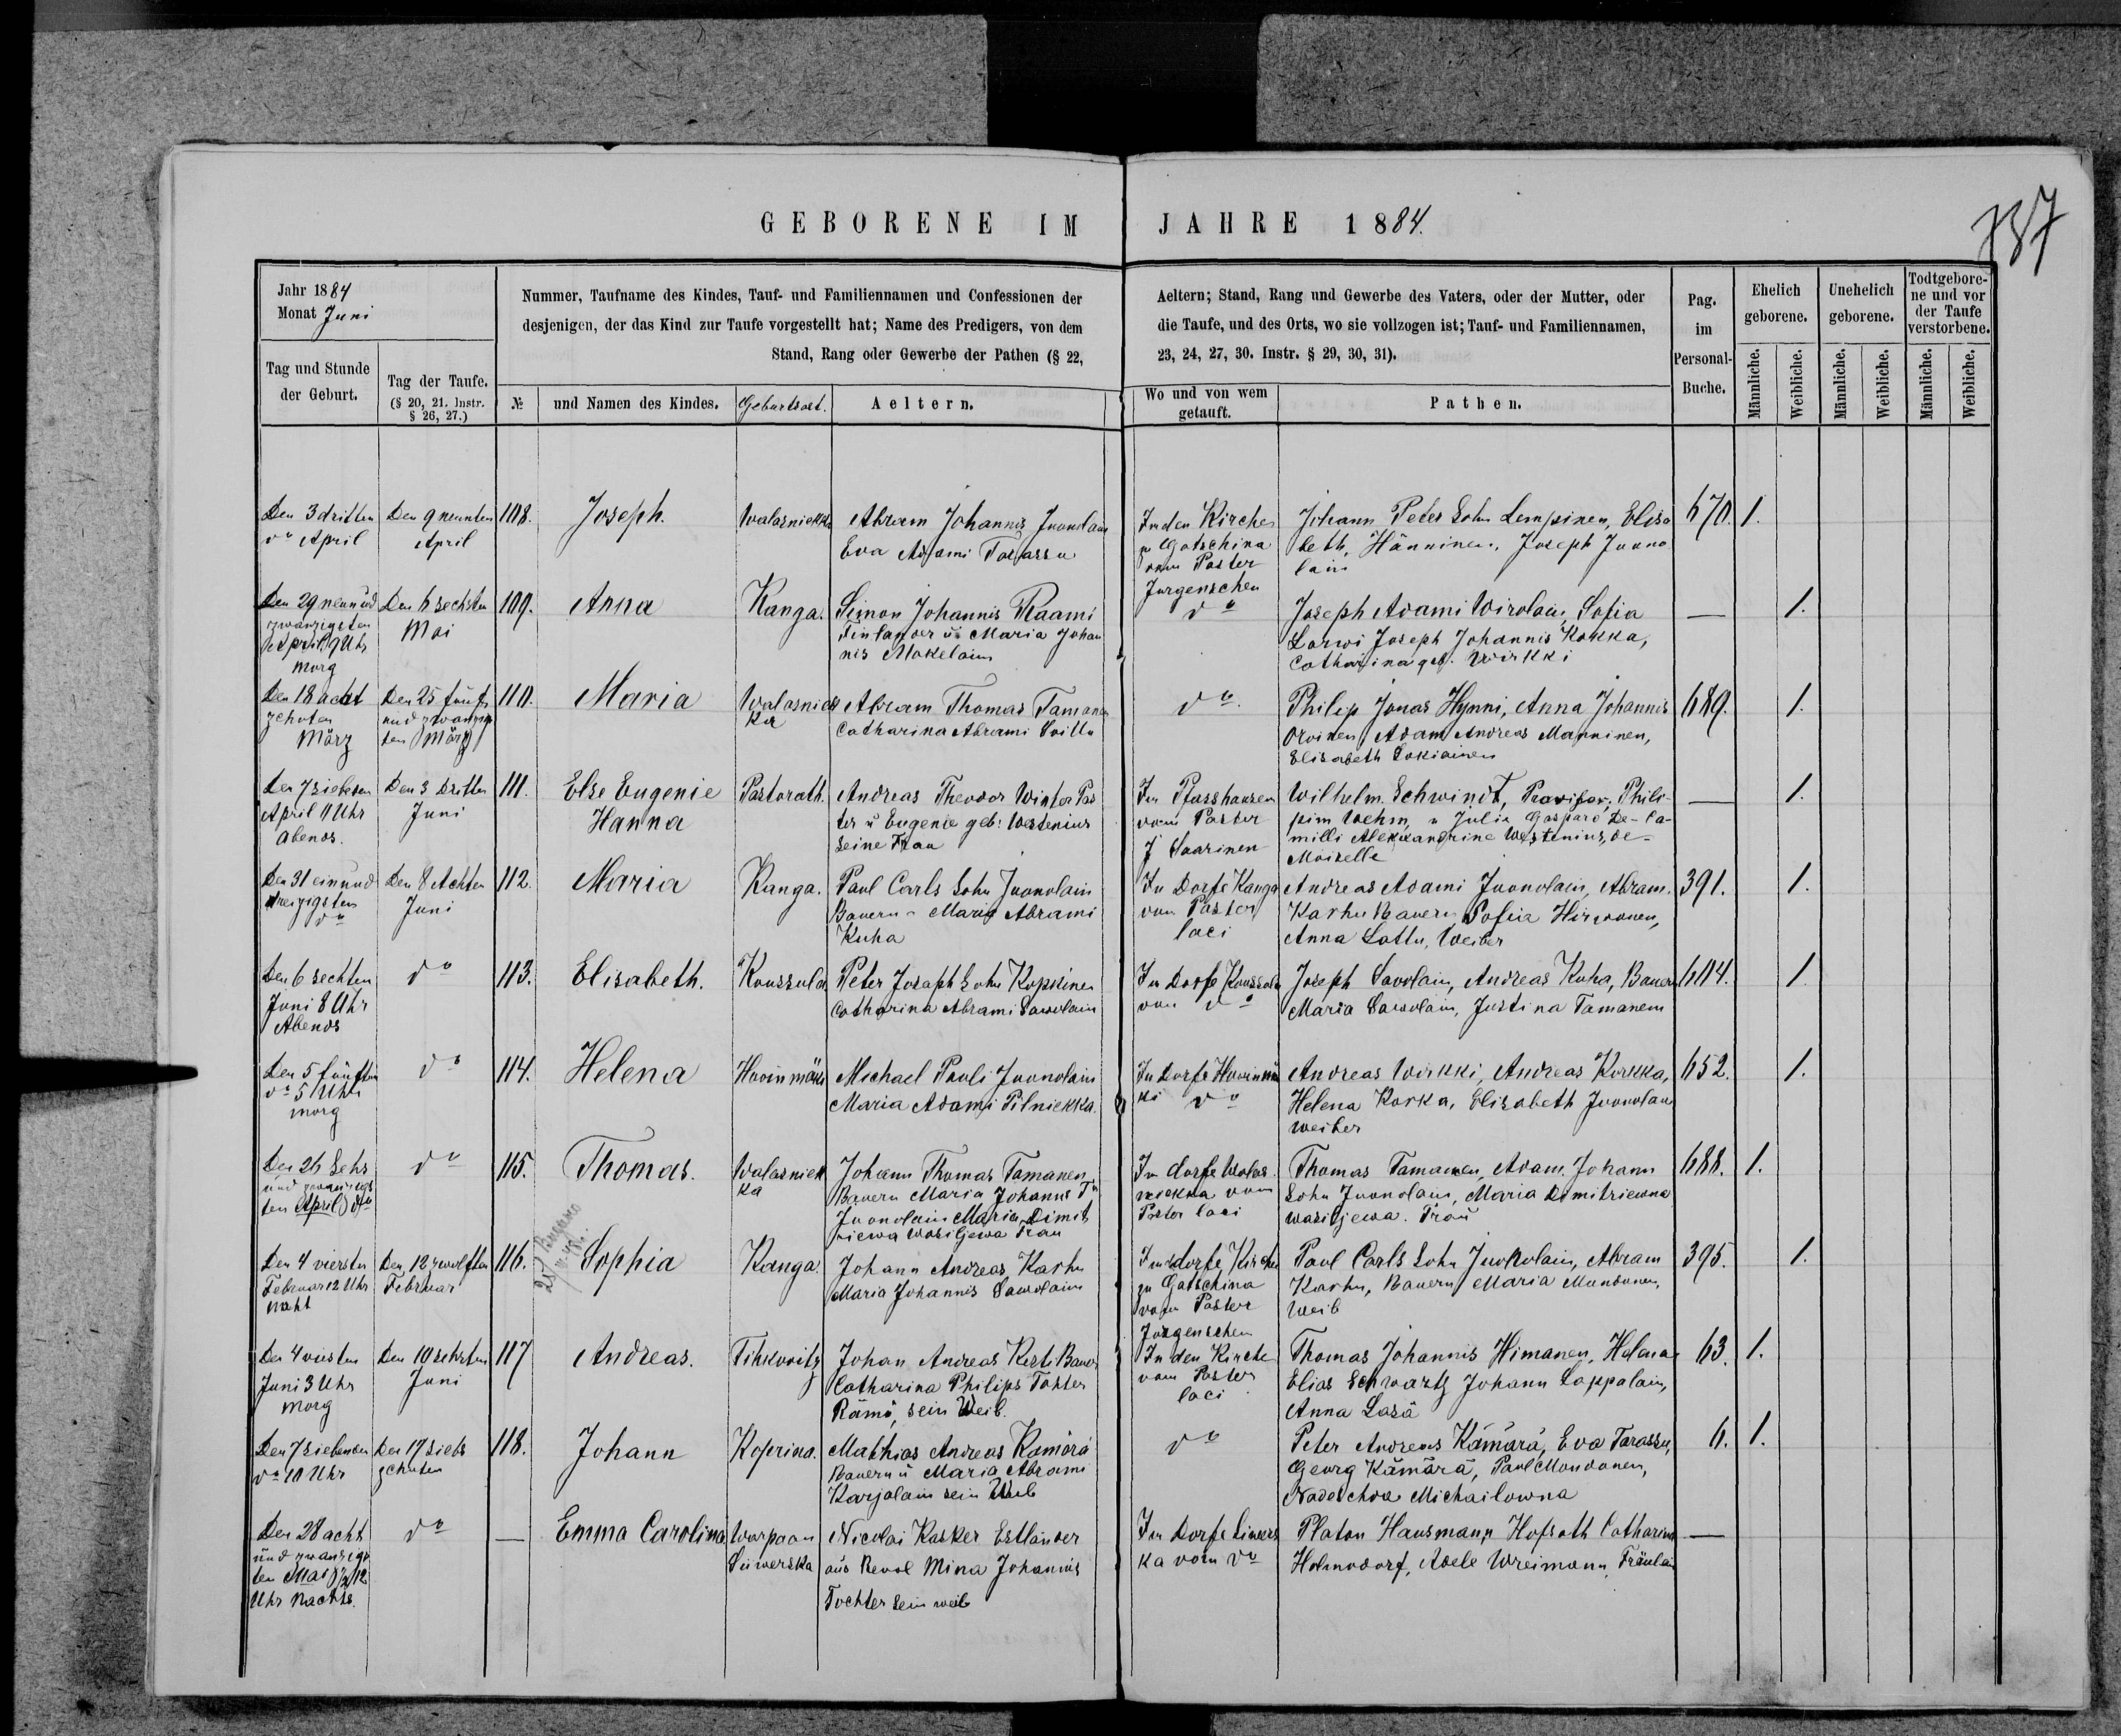 GEBORENE IM JAHRE 1884.
737
Jahr 1884
Monat Juni
Nummer, Taufname des Kindes, Tauf- und Familiennamen und Confessionen der
desjenigen, der das Kind zur Taufe vorgestellt hat; Name des Predigers, von dem
Stand, Rang oder Gewerbe der Pathen (§ 22,
Aeltern; Stand, Rang und Gewerbe des Vaters, oder der Mutter, oder
die Taufe, und des Orts, wo sie vollzogen ist; Tauf- und Familiennamen,
23, 24, 27, 30. Instr. § 29, 30, 31).
Pag.
im
Personal-
Buche.
Ehelich
geborene.
Unehelich
geborene.
Todtgebore-
ne und vor
der Taufe
verstorbene.
Tag und Stunde
der Geburt.
Tag der Taufe.
(§ 20, 21. Instr.
§ 26, 27.)
№
und Namen des Kindes.
Geburtsort.
Aeltern.
Wo und von wem
getauft.
Pathen.
Männliche.
Weibliche.
Männliche.
Weibliche.
Männliche.
Weibliche.
Den 3 dritten
do April
Den 9 neunten
April
108.
Joseph.
Walasniekka
Abram Johannis Juonolain
Eva Adami Tarassu
In den Kirche
zu Gatschina
vom Pastor
Jurgenschen
Johann Peter Sohn Lempinen, Elisa
beth, Hänninen, Joseph Juono
lain
670.
1.
Den 29 neun und
zwanzigsten
April 9 Uhr
morg
Den 6 sechsten
Mai
109.
Anna
Kanga.
Simon Johannis Raami
Finlander u. Maria Johan
nis Mokelain
do
Joseph Adami Wirolain, Sofia
Larwi Joseph Johannis Kokka,
Catharina geb. Wirkki
—
1.
Den 18 acht
zehnten
März
Den 25 fünf
und zwanzig
ten März
110.
Maria
Walasniek
ka
Abram Thomas Tamanen
Catharina Abrami Soittu
do.
Philip Jonas Hynni, Anna Johannis
Orvinen, Adam Andreas Manninen,
Elisabeth Sokiainen
689.
1.
Den 7 sieben
April 11 Uhr
Abends.
Den 3 Dritten
Juni
111.
Else Eugenie
Hanna
Pastorath.
Andreas Theodor Winter Pas
tor u Eugenie geb: Westenius
seine Frau
Im
vom Pastor
J Saarinen
Wilhelm Schwindt, Provisor, Phili-
pim Wehm, u Julie Gasparo De-Ca-
milli Alexandrine Westenius, De-
Moiselle
—
1.
Den 31 ein und
dreizigsten
do
Den 8 Achten
Juni
112.
Maria
Kanga.
Paul Carls Sohn Juonolain
Bauern u Maria Abrami
Kuha
In Dorfe Kanga
vom Pastor
loci
Andreas Adami Juonolain, Abram
Karhu Bauern Sofia Hirwonen,
Anna Lattu, Weiber
391.
1.
Den 6 sechten
Juni 8 Uhr
Abends
do
113.
Elisabeth.
Koussula
Peter Joseph Sohn Koppinen
Catharina Abrami Sawolain
In Dorfe Koussula
von do
Joseph Savolain, Andreas Kuha, Bauern
Maria Sawolain, Justina Tamanem
604.
1
Den 5 fünften
do 5 Uhr
morg
do
114.
Helena
Howinmäki
Michael Pauli Juonolain
Maria Adami Pilniekka.
In Dorfe Howinmä
ki do
Andreas Wirkki, Andreas Korkka,
Helena Korka, Elisabeth Juonolain
weiber
652.
1.
Den 26 Sehs
und zwanzigs
ten April do
do
115.
Thomas.
Walasniek
ka
Johann Thomas Tamanen,
Bauern Maria Johannis Tr
Juonolain Maria Dimit
riewa Wasiljewa Frau
In dorfe Walas
niekka vom
Pastor loci
Thomas Tamanen, Adam Johann
Sohn Juonolain, Maria Dimitriewna
Wasiljewa. Frau
688.
1.
Den 4 viersten
Februar 12 Uhr
Naht
Den 12 zwolften
Februar
116.
Sophia
Kanga
Johann Andreas Karhu
Maria Johannis Sawolain
In dorfe Kirche
zu Gattschina
vom Pastor
Jorgenschen
Paul Carls Sohn Juonolain, Abram
Karhu, Bauern Maria Mundonen,
Weib
395.
1.
Den 4 viesten
Juni 3 Uhr
morg
Den 10 sehzten
Juni
117
Andreas.
Tihkovitz
Johan Andreas Kerti Bauer
Catharina Philips Tohter
Rämö, sein Weib.
In den Kirche
vom Pastor
loci
Thomas Johannis Himanen, Helena
Elias Schwartz Johann Loppalain,
Anna Lasä
63.
1.
Den 7 siebenden
do 10 Uhr
Den 17 siebs
zehnten
118.
Johann
Koperina.
Matthias Andreas Kämärä
Bauern u Maria Abrami
Karjalain sein Weib
do
Peter Andreas Kämärä, Eva Tarassu,
Georg Kämärä, Paul Mondonen,
Nadeschda Michailowna
6.
1.
Den 28 acht
und zwanzigs
ten Mai 1/2 12
Uhr Nachts.
do
—
Emma Carolina
Warpaan
Siiwerska
Nicolai Kasker Estländer
aus Reval Mina Johannis
Tochter sein weib
Im Dorfe Siwers
ka vom do
Platon Hausmann, Hofrath Catharina
Holmsdorf, Adele Wreimann, Fräulein
—